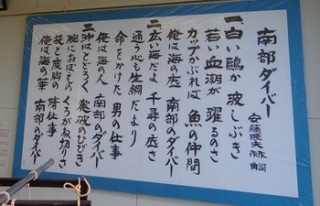 南部ダイバー
安藤睦夫 作詞 作曲
一、白い鴎か 波しぶき
若い血潮が 躍るのさ
カップかぶれば 魚の仲間
俺は海の底 南部のダイバー
二、広い海だよ 千尋の底さ
通う心も 生綱だより
命をかけた 男の仕事
俺は海の人 南部のダイバー
三、沖はとどろく 発破のひびき
腕におぼえの
技と度胸の 潜仕事
俺は海の華 南部のダイバー